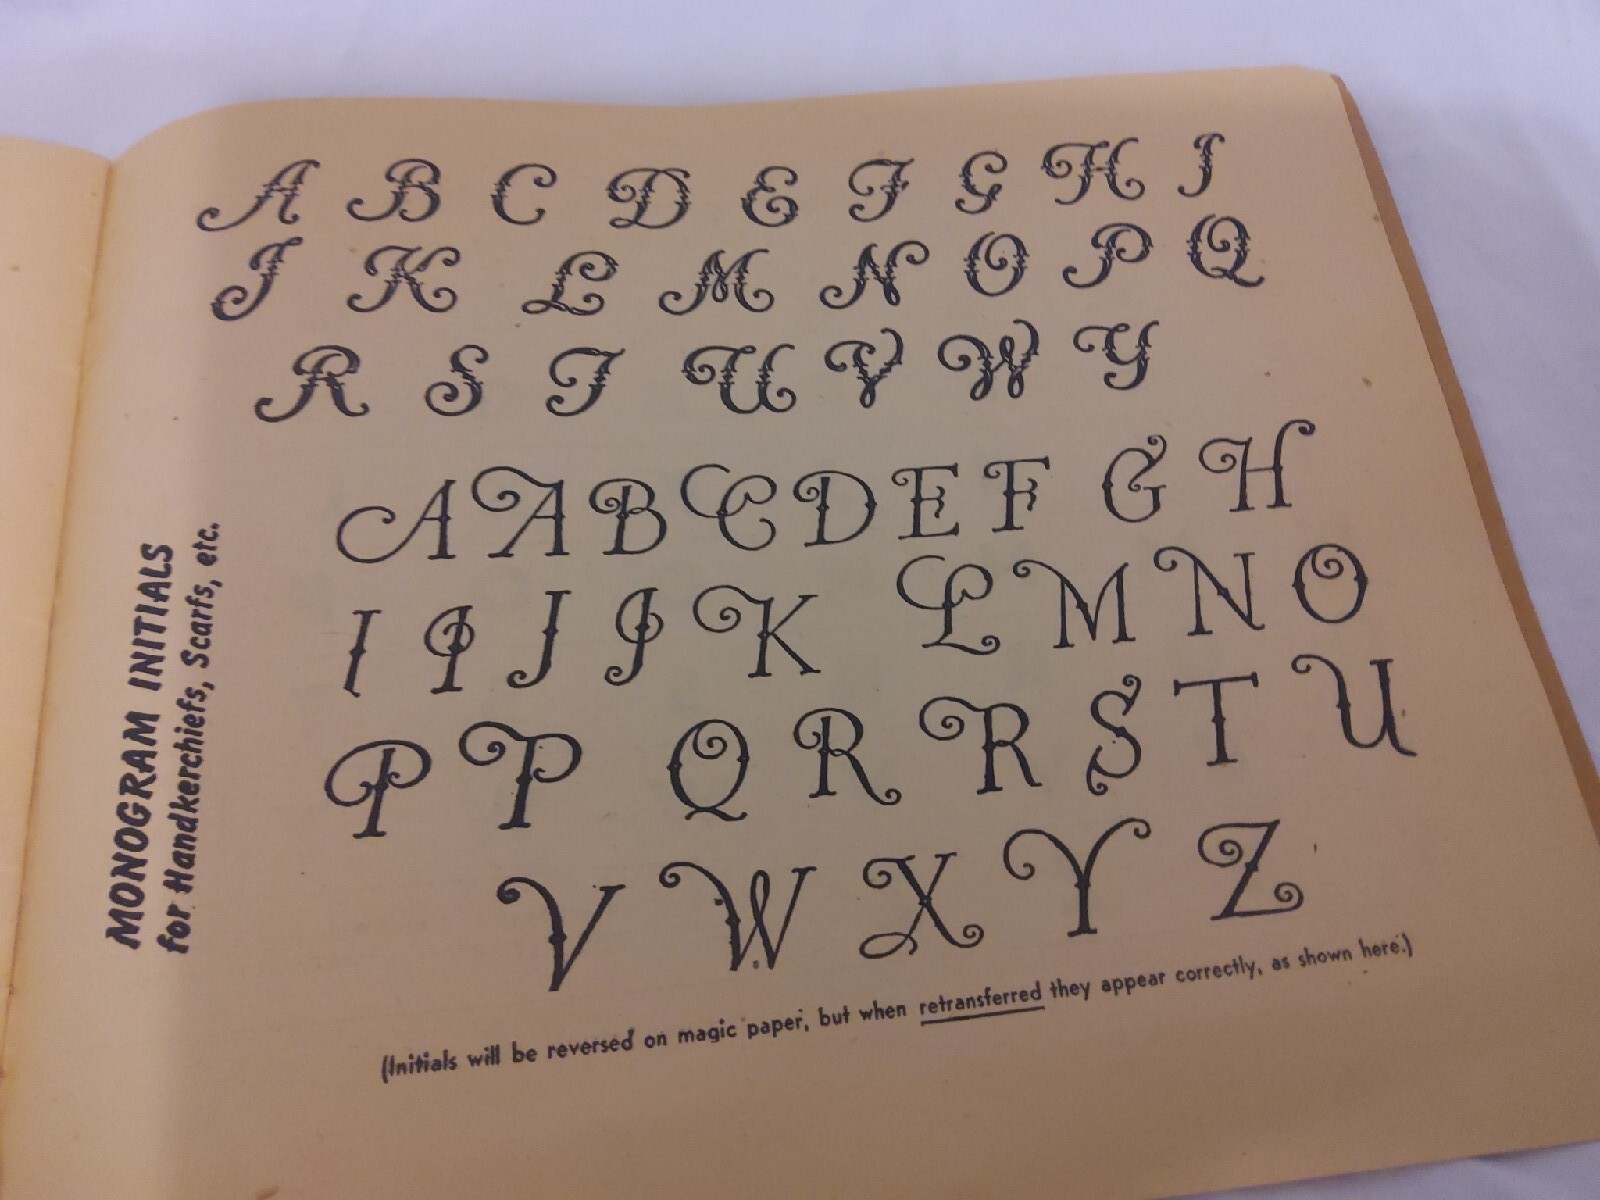 MONOGRAM INITIALS
for Handkerchiefs, Scarfs, etc.
A B C D E F G H I
J K L M N O P Q
R S T U V W Y
A A B C D E F G H
I I J J K L M N O
P P Q R R S T U
V W X Y Z
(Initials will be reversed on magic paper, but when retransferred they appear correctly, as shown here.)